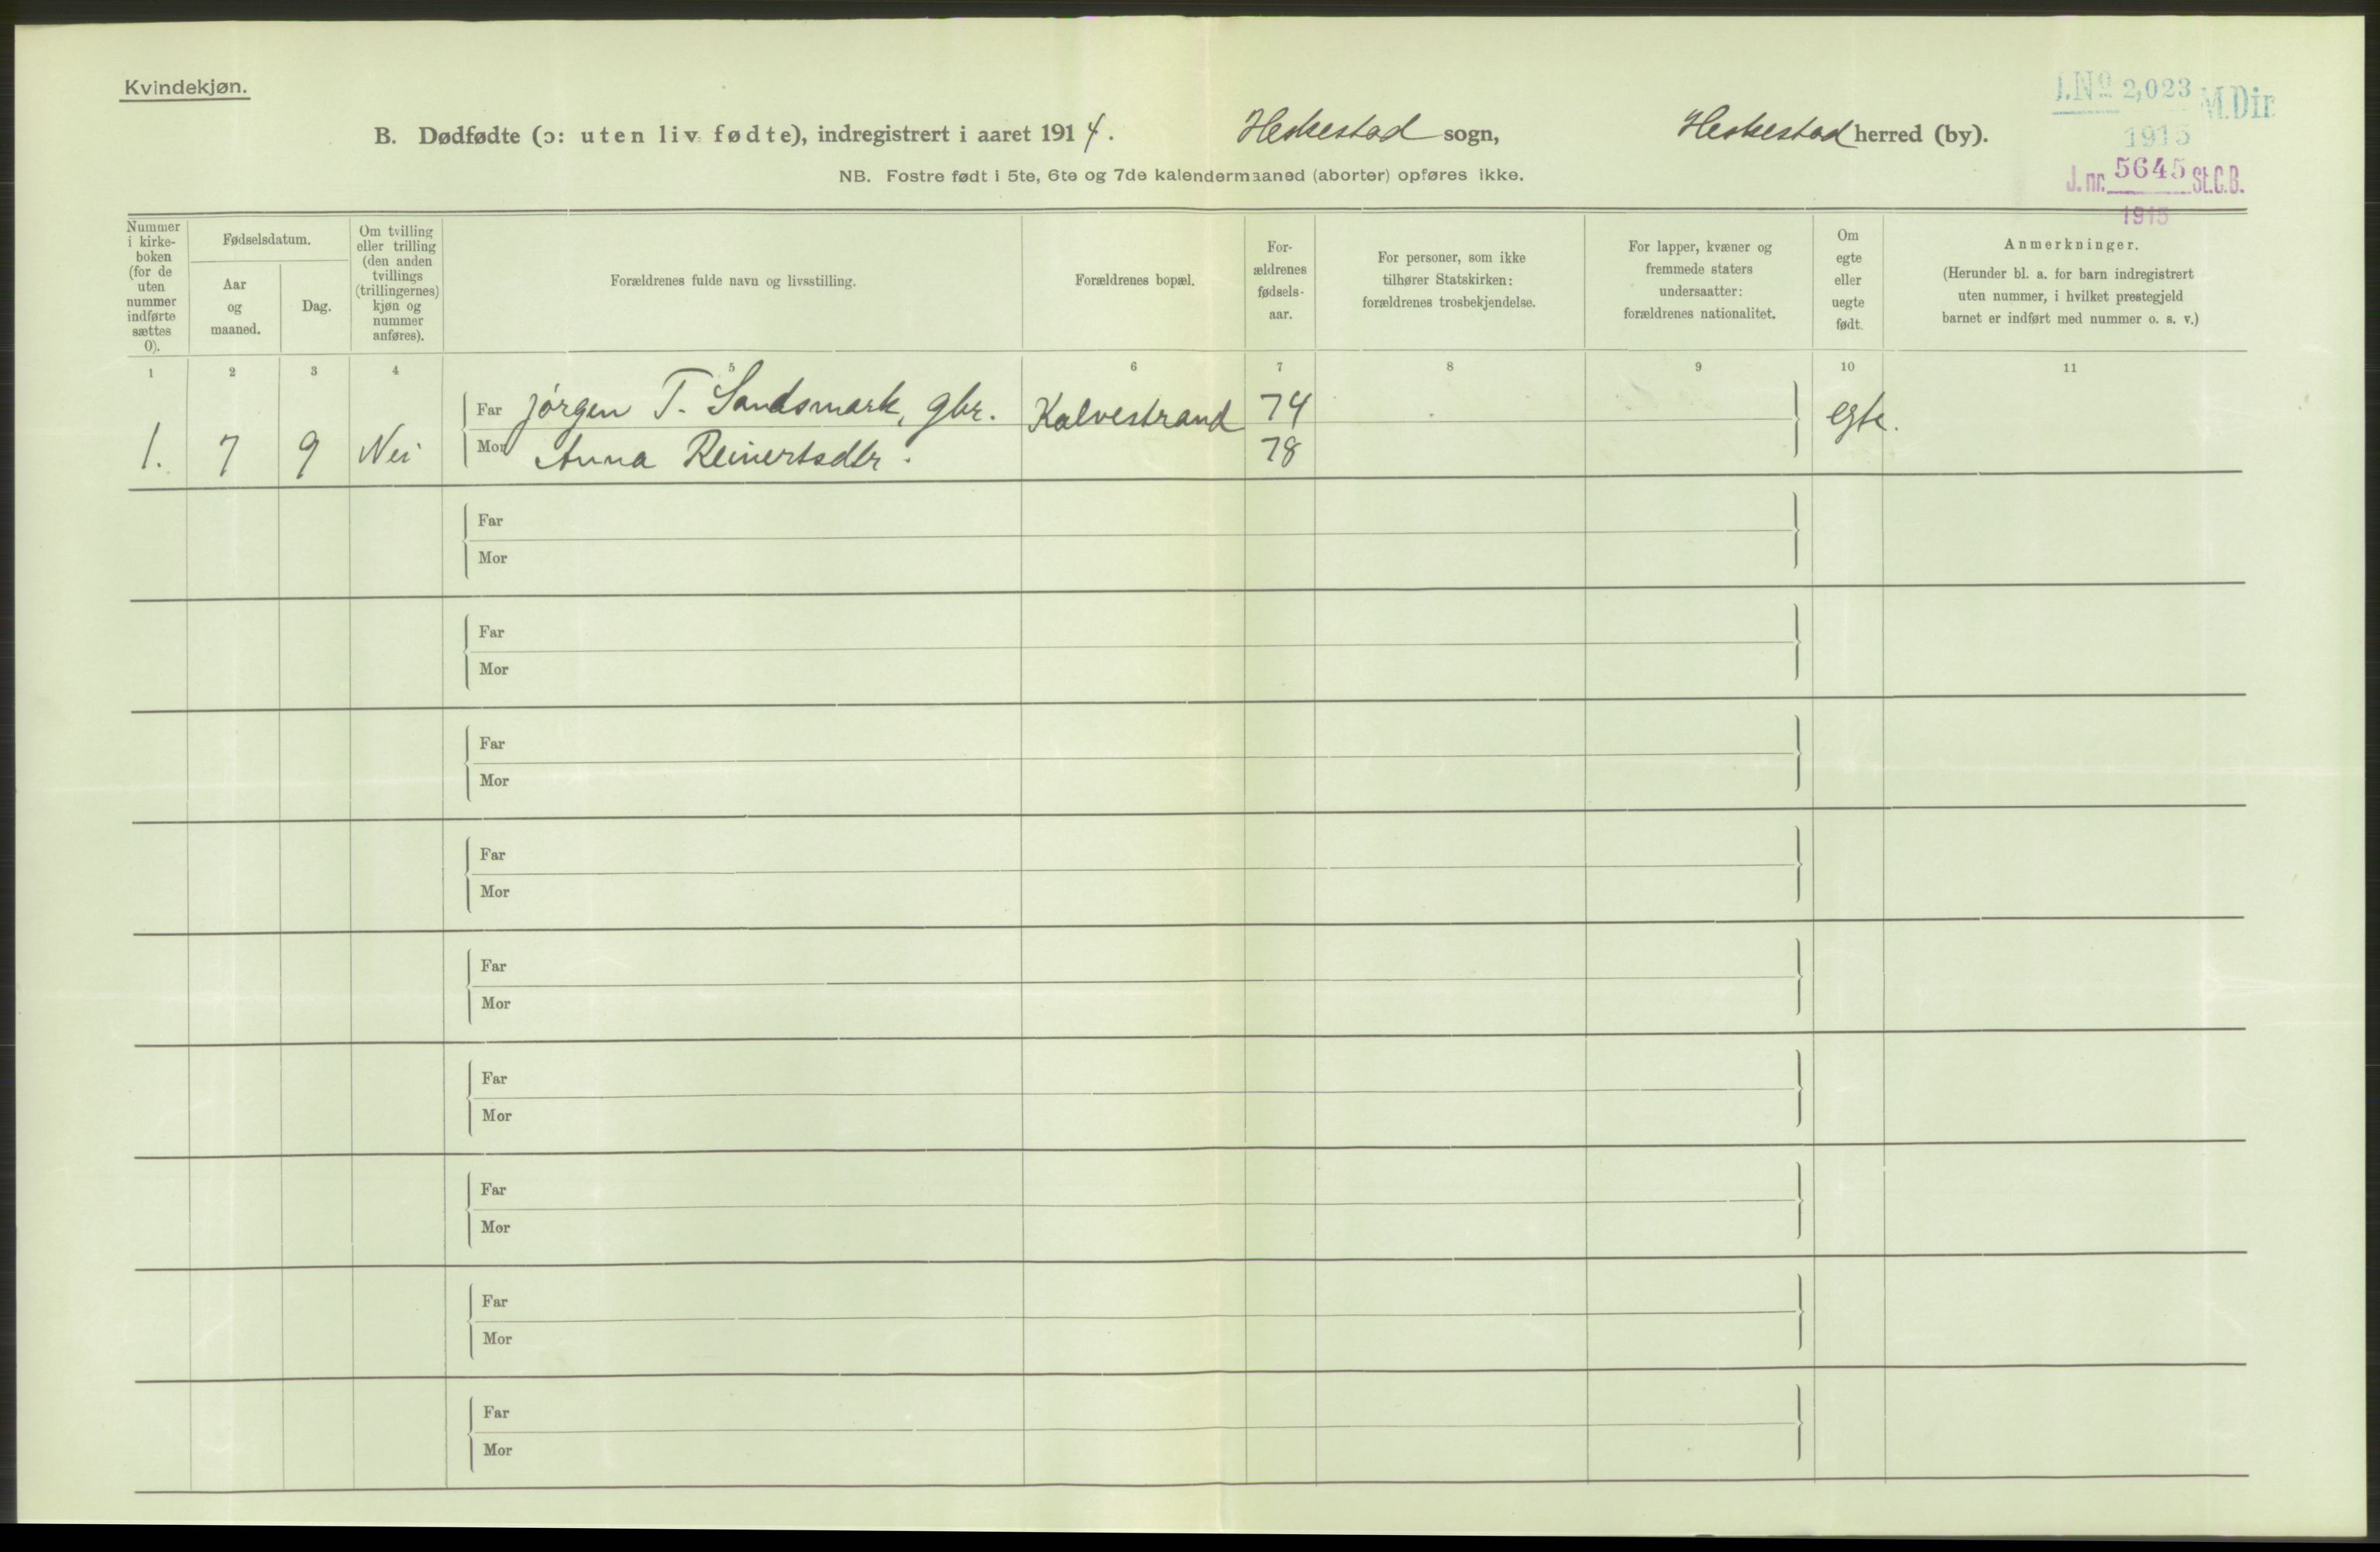 Kvindekjøn.
B. Dødfødte (ɔ: uten liv fødte), indregistrert i aaret 1914. Heskestad sogn, Heskestad herred (by).
NB. Fostre født i 5te, 6te og 7de kalendermaaned (aborter) opføres ikke.
J.Nº 2,023 M.Dir
1915
J. nr. 5645 St.C.B.
1915
Nummer
i kirke-
boken
(for de
uten
nummer
indførte
sættes
0).
Fødselsdatum.
Aar
og
maaned.
Dag.
Om tvilling
eller trilling
(den anden
tvillings
(trillingernes)
kjøn og
nummer
anføres).
Forældrenes fulde navn og livsstilling.
Forældrenes bopæl.
For-
ældrenes
fødsels-
aar.
For personer, som ikke
tilhører Statskirken:
forældrenes trosbekjendelse.
For lapper, kvæner og
fremmede staters
undersaatter:
forældrenes nationalitet.
Om
egte
eller
uegte
født.
Anmerkninger.
(Herunder bl. a. for barn indregistrert
uten nummer, i hvilket prestegjeld
barnet er indført med nummer o. s. v.)
1 2 3 4 5 6 7 8 9 10 11
Far Jørgen T. Sandsmark, gbr. Kalvestrand 74 egte.
1. 7 9 Nei Mor Anna Reinertsdtr. 78
Far
Mor
Far
Mor
Far
Mor
Far
Mor
Far
Mor
Far
Mor
Far
Mor
Far
Mor
Far
Mor